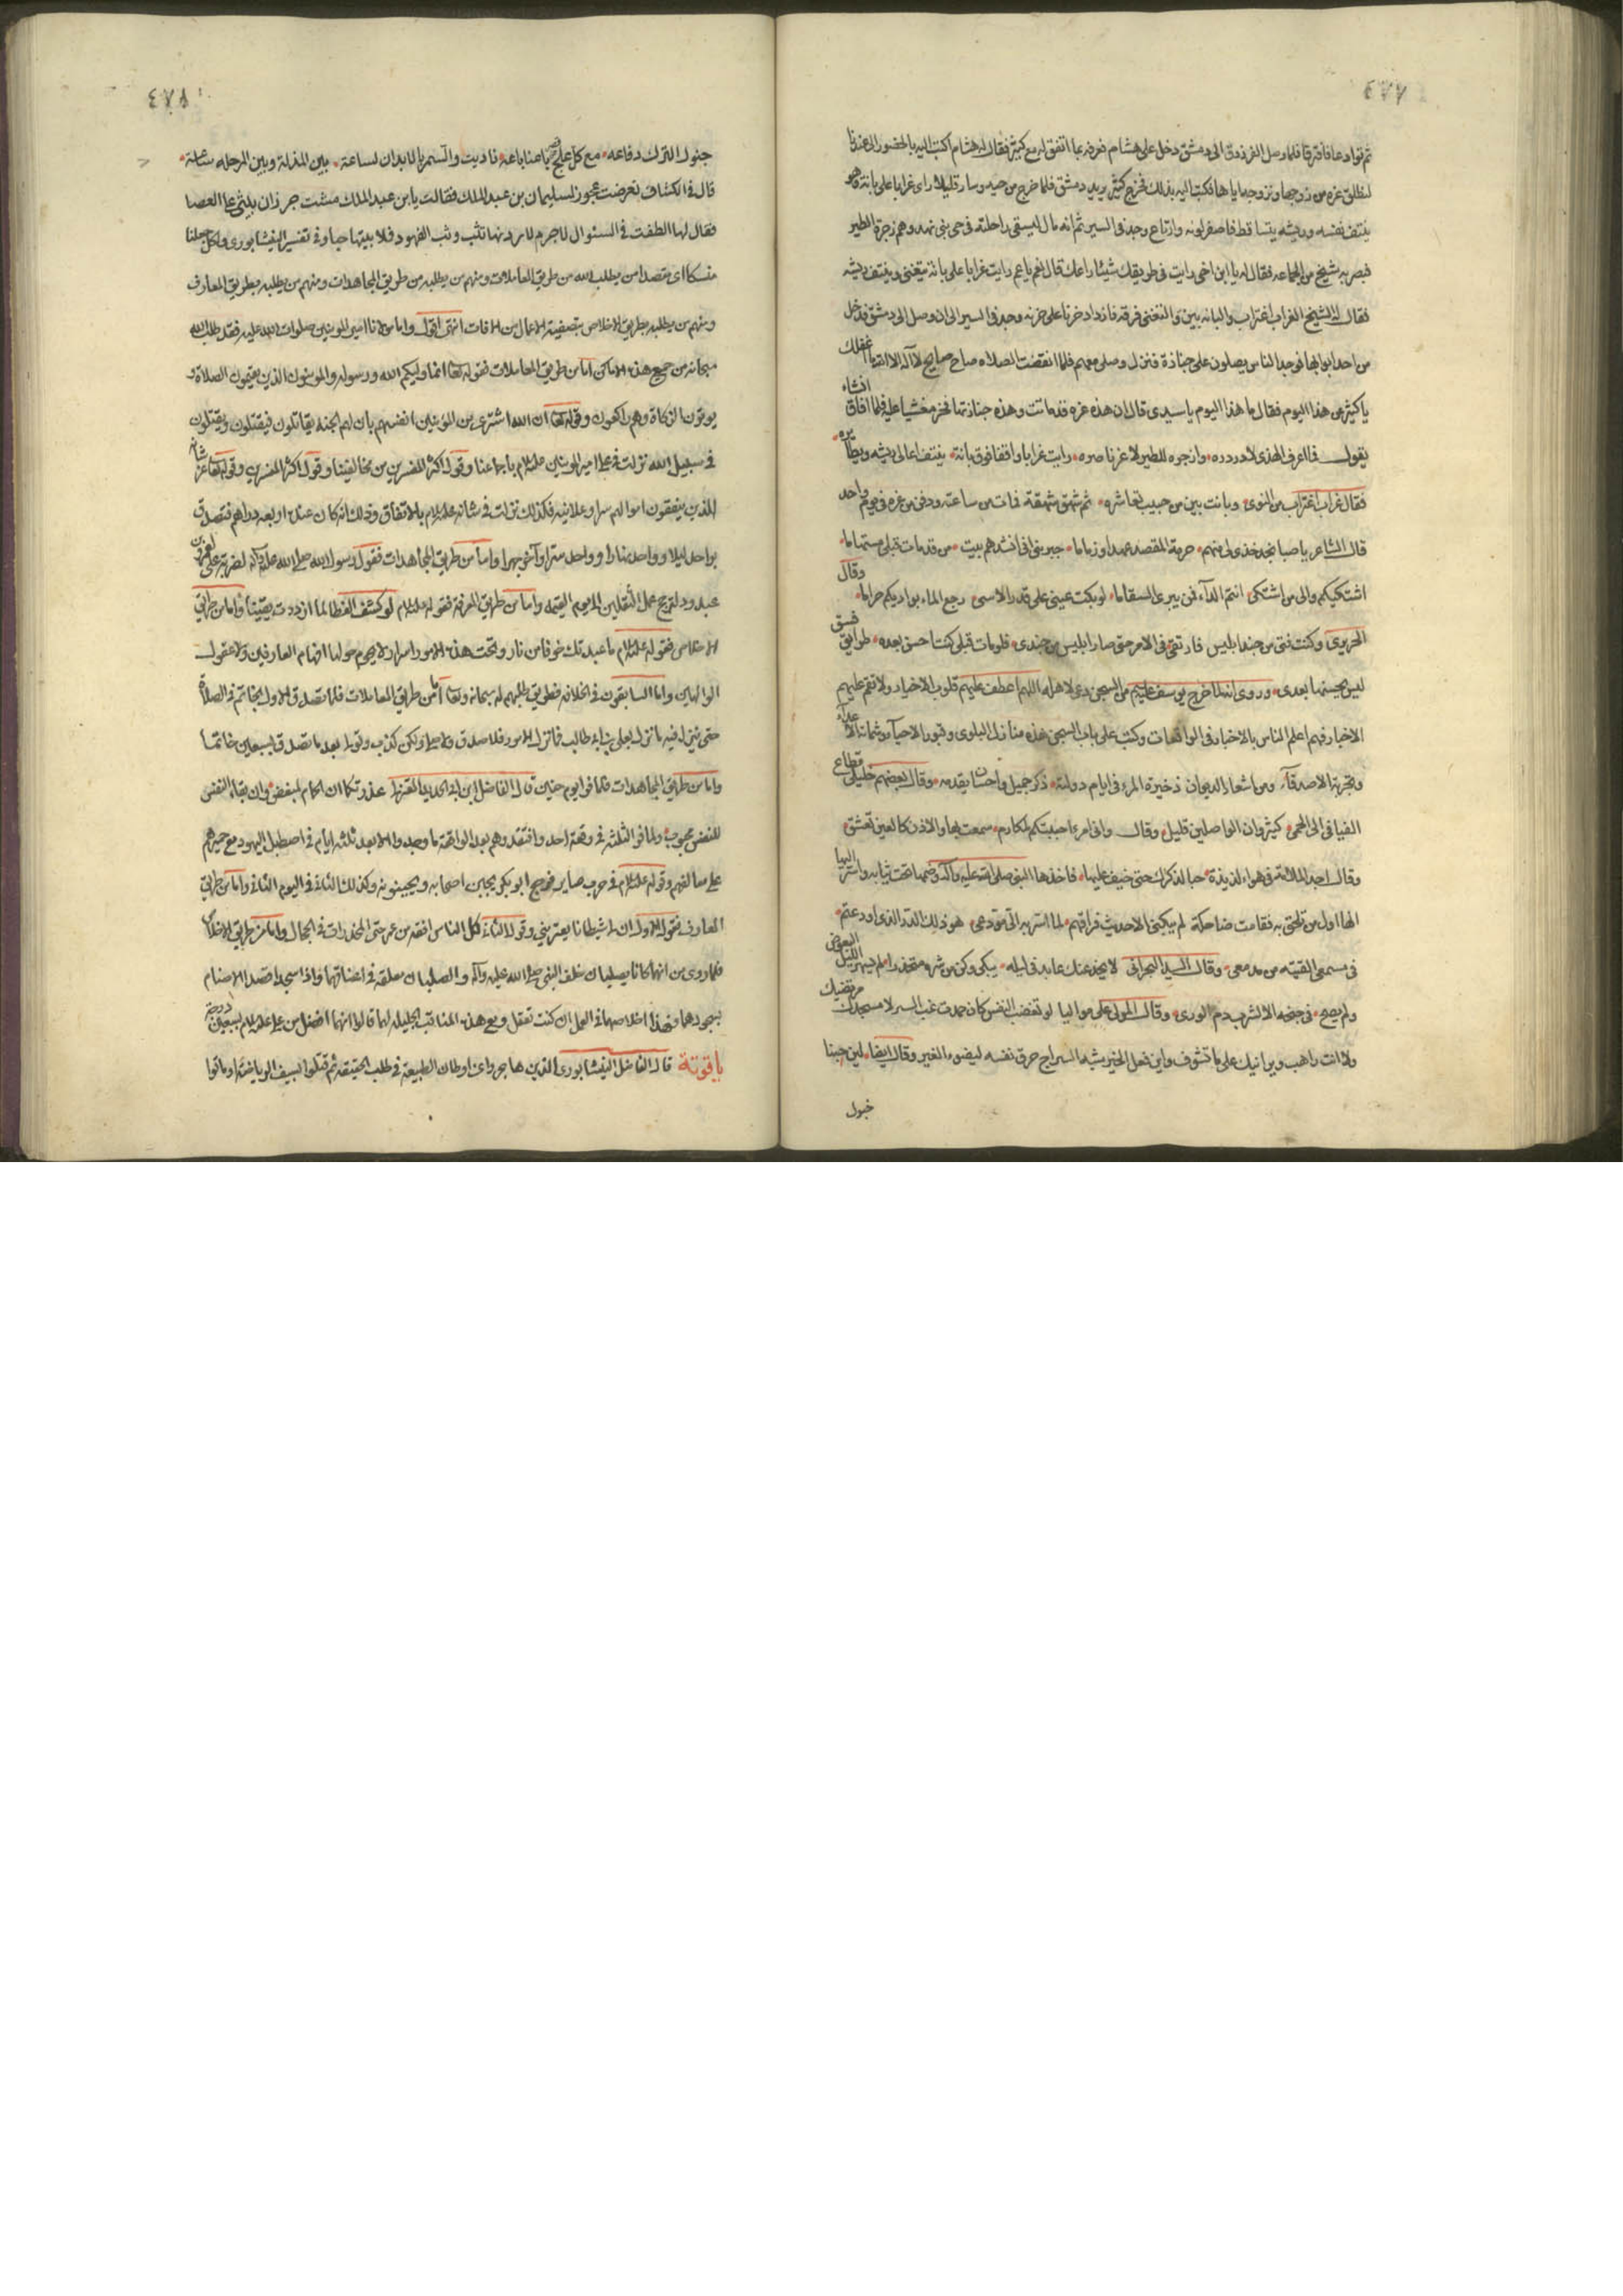 ٤٧٧
ثم توادعا فافترقا فلما وصل الفرزدق الى دمشق دخل على هشام فعرفه بما اتفق له مع كثير فقال له هشام اكتب اليه بالحضور الى عندنا
لنطلق عزه من زوجها ونزوجها اياها فكتب اليه بذلك فخرج كثير يريد دمشق فلما خرج من حيه وسار قليلا راى غرابا على بانة وهو
ينتف نفسه وريشه يتساقط فاصفر لونه وارتاع وجد في السير ثم انه مال ليسقى راحلته في حى بنى نهد وهم زجرة الطير
فبصر به شيخ من الجماعه فقال له يا ابن اخى رايت في طريقك شيئا راعك قال نعم يا عم رايت غرابا على بانة يتغنى وينتف ريشه
فقال له الشيخ الغراب اغتراب والبانه بين والتغنى فرقه فازداد حزنا على حزنه وجد في السير الى ان وصل الى دمشق فدخل
من احد ابوابها فوجد الناس يصلون على جنازة فنزل وصلى معهم فلما انقضت الصلاه صاح صايح لا اله الا الله ما اغفلك
يا كثير عن هذا اليوم فقال ما هذا اليوم يا سيدى قال ان هذه عزه قد ماتت وهذه جنازتها فخر مغشيا عليه فلما افاق انشاء
يقول فما اعرف الهذى لا در دره وازجره للطير لا عز ناصره رايت غرابا واقفا فوق بانة ينتف اعالى ريشه ويطايره
فقال غراب اغتراب من النوى وبانت بين من حبيب تعاشره ثم شهق شهقة فمات من ساعته ودفن مع عزه في يوم واحد
قال الشاعر يا صبا نجد خذى لى منهم حرمة المقصد عهدا وزماما خبرينى انى انشدهم بيت من قد مات قبلى مستهاما
اشتكيكم والى من اشتكى انتم الدآء فمن يبرى السقاما لو بكت عينى على قدر الاسى رجع الماء بواديكم حراما وقال
الحريرى وكنت فتى من جند ابليس فارتقى في الامر حتى صار ابليس من جندى فلو مات قبلى كنت احسن بعده طرايق فسق
ليس يحسنها بعدى وروى انه لما خرج يوسف عليه‌م من السجن دعى لاهله اللهم اعطف عليهم قلوب الاخيار ولا تعم عليهم
الاخبار فهم اعلم الناس بالاخبار في الواقعات وكتب على باب السجن هذه منازل البلوى وقبور الاحيآء وشماتة الاعداء
وتجربة الاصدقآء ومن اشعار الديوان ذخيرة المرء في ايام دولته ذكر جميل واحسان يقدمه وقال بعضهم خليلى قطاع
الفيافى الى الحمى كثير وان الواصلين قليل وقال وانى امرء احببتكم لمكارم سمعت بها والاذن كالعين تعشق
وقال اجد الملامة في هواء لذيذة حبا لذكرك حتى خيف عليها فاخذها النبى صلى الله عليه وآله وضمها تحت ثيابه واسر اليها
انها اول من تلحق به فقامت ضاحكة لم يبكنى الا حديث فراقهم لما اسر به الى مودعى هو ذلك الدر الذى اودعتم
في مسمعى القيته من مدمعى وقال السيد البحرانى لا يخدعنك عابد في ليله يبكى وكن من شره متحذرا لم يسهر الليل البعوض
ولم يصح في جنحه الا لشرب دم الورى وقال المولى على مواليا لو تغضب النفس كان حمدت غب السير لا مسجدك مرتضيك
ولا انت راهب ويرانيك على ما تشوف واين فعل الخير يشه السراج حرق نفسه ليضوء الغير وقال ايضا لين جينا
خبول
٤٧٨
خبول الترك دفاعه مع كل علج
قال في الكشاف تعرضت عجوز لسليمان بن عبد الملك فقالت يا بن عبد الملك مشت جرذان بيتى على العصا
فقال لها الطفت في السئوال لا جرم لاردنها تثب وثب الفهود فملا بيتها حبا وفى تفسير النيشابورى ولكل جعلنا
منسكا اى مقصدا من يطلب الله من طريق المعاملات ومنهم من يطلبه من طريق المجاهدات ومنهم من يطلبه بطريق المعارف
ومنهم من يطلبه بطريق الاخلاص بتصفية الاعمال من الافات انتهى اقول واما مولانا امير المومنين صلوات الله عليه فقد طلب الله
سبحانه من جميع هذه الاماكن اما من طريق المعاملات فقوله تعا انما وليكم الله ورسوله والمومنون الذين يقيمون الصلاة و
يوتون الزكاة وهم راكعون وقوله تعا ان الله اشترى من المؤمنين انفسهم بان لهم الجنه يقاتلون فيقتلون ويقتلون
في سبيل الله نزلت في على امير المومنين عليه‌السلام باجماعنا وقول اكثر المفسرين من مخالفينا وقوله تعا عز شانه
الذين ينفقون اموالهم سرا وعلانيه فكذلك نزلت في شانه عليه‌السلام بالاتفاق وذلك انه كان عنده اربعه دراهم فتصدق
بواحد ليلا وواحد نهارا وواحد سترا وآخر جهرا واما من طريق المجاهدات فقول رسول الله صلى الله عليه وآله لضربة على لعمرو بن
عبد ود ترجح عمل الثقلين الى يوم القيمه واما من طريق المعرفة فقوله عليه‌السلام لو كشف الغطا لما ازددت يقينا واما من طريق
الاخلاص فقوله عليه‌السلام ما عبدتك خوفا من نار وتحت هذه الامور اسرار لا يحوم حولها افهام العارفين ولا عقول
الوالهين واما السابقون في الخلافه فطريق طلبهم له سبحانه وتعا اما من طريق المعاملات فلما تصدق الاول بخاتم في الصلاة
حتى ينزل فيه ما نزل بعلى بن ابى طالب
واما من طريق المجاهدات فلما فر ايوم حنين قال الفاضل ابن ابى الحديد المعتزلى عذرتكما ان الحمام لمبغض وان بقاء النفس
للنفس محبوب ولما فر الثلثه في وقعة احد وافتقدوهم بعد الواقعة ما وجدوا الا بعد ثلثه ايام في اصطبل اليهود مع حميرهم
على معالفهم وقوله عليه‌السلام في حرب
المعارف فقول الاول ان لى شيطانا يعترينى وقول الثانى كل الناس افقه من عمر حتى المخدرات في الحجال واما من طريق الاخلاص
فما روى من انهما كانا يصليان خلف النبى صلى الله عليه وآله والصلبان معلقه في اعناقهما واذا سجدا قصدا الاصنام
بسجودهما فهذا اخلاصهما في العمل ان كنت تعقل ومع هذه المناقب الجليله لهما قالوا انهما افضل من على عليه‌السلام بسبعين درجة
ياقوتة قال الفاضل النيشابورى الذين هاجروا عن اوطان الطبيعه في طلب الحقيقه ثم قتلوا بسيف الرياضة او ماتوا